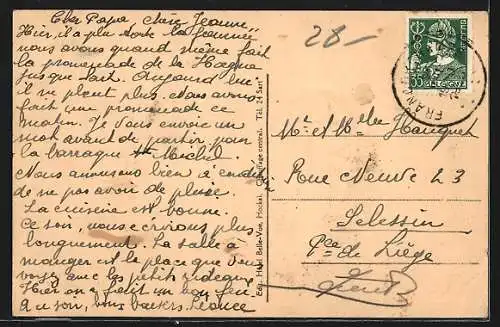 Cher Papa chère Jeanne,
Hier, il a plu toute la journée
nous avons quand même fait
la promenade de la Hoëgne
jusque tard. Aujourd'hui
il ne pleut plus. Nous avons
fait une promenade ce
matin. Je vous envoie un
mot avant de partir pour
la barraque St Michel.
Nous amusons bien à condition
de ne pas avoir de pluie.
La cuisine est bonne.
Ce soir, nous écrirons plus
longuement. La salle à
manger est la place que vous
voyez avec les petits rideaux.
Hier on a fait un bon feu
Au soir, bons baisers Léonce
28-
Edit. Hôtel Belle-Vue, Hockai. Chauffage central. Tél. 24 Sart
35
BELGIQUE
Mr et Mlle Hauquet
Rue Neuve 23
Sclessin
Pce de Liège